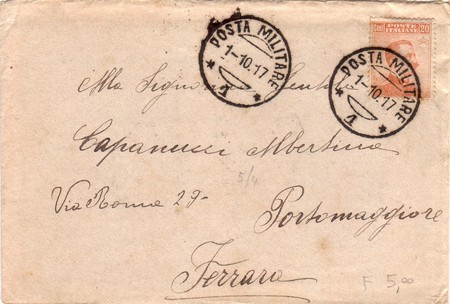 POSTE ITALIANE
20
POSTA MILITARE
1-10.17
1
POSTA MILITARE
1-10.17
1
Alla Signorina
Capanucci Albertina
5/4
Via Roma 29-
Portomaggiore
Ferrara
F 5,00